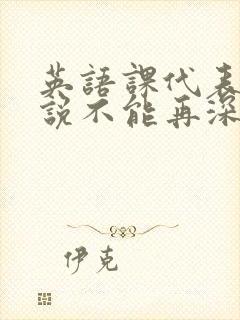 英語課代表
說不能再深
伊克